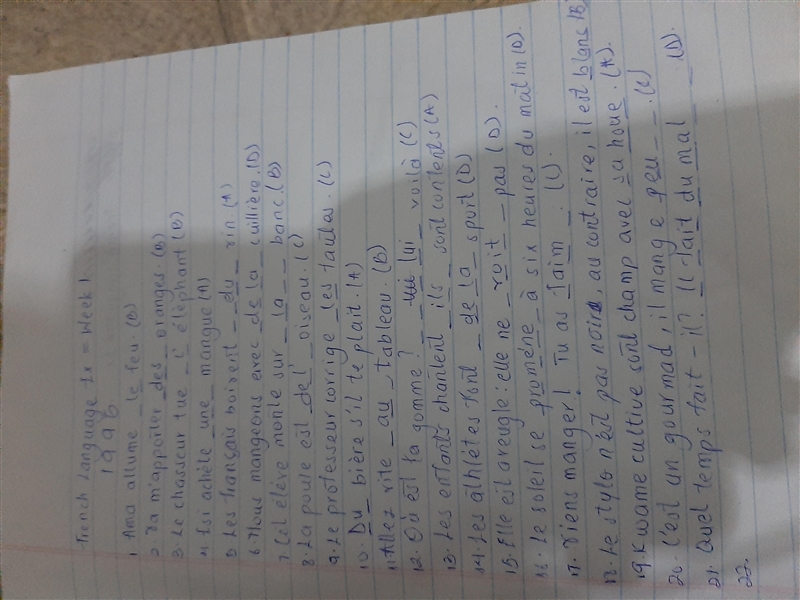 French Language 1x = Week 1
1996
1 Ama allume le feu. (B)
2 Va m'apporter des oranges. (B)
3. Le chasseur tue l' éléphant (B)
4 Esi achète une mangue (A)
5 Les français boivent du vin (A)
6. Nous mangeons avec de la cuillière. (D)
7 Cet élève monte sur la banc. (B)
8. La poule est de l' oiseau. (C)
9. Le professeur corrige les fautes. (C)
10 Du bière s'il te plait. (A)
11 Allez vite au tableau. (B)
12. Où est la gomme? lui voilà (C)
13. Les enfants chantent ils sont contents (A)
14. Les athlètes font de la sport (D)
15. Elle est aveugle: elle ne voit pas (D).
16. Le soleil se promène à six heures du matin (D).
17. Viens manger! Tu as faim . (C).
18. Le stylo n'est pas noir, au contraire, il est blanc (B)
19. Kwame cultive sont champ avec sa houe. (A).
20. C'est un gourmad, il mange peu . (C)
21. Quel temps fait-il? Il fait du mal (D).
22.